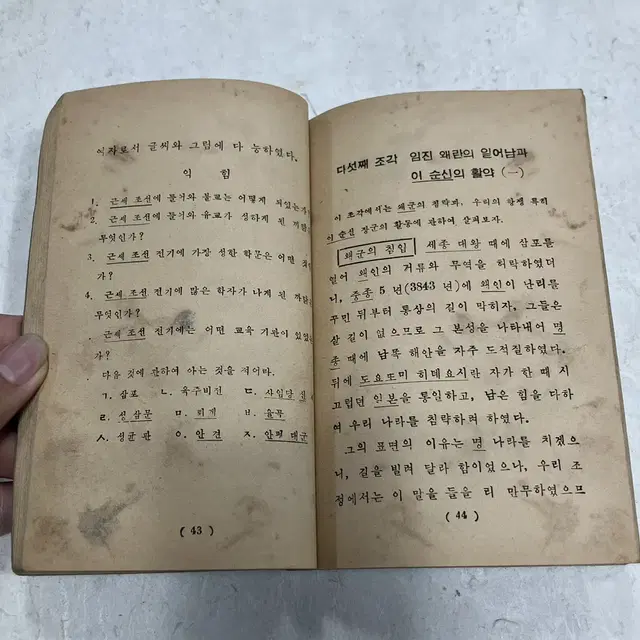 여자로서 글씨와 그림에 다 능하였다.
익 힘
1. 근세 조선에 들어와 불교는 어떻게 되었는
2. 근세 조선에 들어와 유교가 성하게 된 까닭
무엇인가?
3. 근세 조선 전기에 가장 성한 학문은 어떤 것
가?
4. 근세 조선 전기에 많은 학자가 나게 된 까닭
무엇인가?
근세 조선 전기에는 어떤 교육 기관이 있었
가?
다음 것에 관하여 아는 것을 적어라.
ㄱ. 삼포 ㄴ. 육주비전 ㄷ. 사임당 신
ㄹ. 성삼문 ㅁ. 퇴계 ㅂ. 율곡
ㅅ. 성균관 ㅇ. 안견 ㅈ. 안평 대군
( 43 )
다섯째 조각 임진 왜란의 일어남과
이 순신의 활약 (一)
이 조각에서는 왜군의 침략과, 우리의 항쟁 특히
이 순신 장군의 활동에 관하여 살펴보자.
왜군의 침입 세종 대왕 때에 삼포를
열어 왜인의 거류와 무역을 허락하였더
니, 중종 5년(3843 년)에 왜인이 난리를
꾸민 뒤부터 통상의 길이 막히자, 그들은
살 길이 없으므로 그 본성을 나타내어 명
종 때에 남쪽 해안을 자주 도적질하였다.
뒤에 도요또미 히데요시란 자가 한 때 시
끄럽던 일본을 통일하고, 남은 힘을 다하
여 우리 나라를 침략하려 하였다.
그의 표면의 이유는 명 나라를 치겠으
니, 길을 빌려 달라 함이었으나, 우리 조
정에서는 이 말을 들을 리 만무하였으므
( 44 )